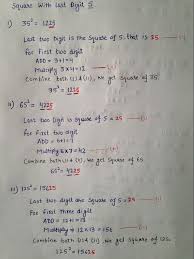 Square With Last Digit 5
i) 35² = 1225
Last two Digit is the Square of 5, that is 25 — (i)
For First two digit
ADD = 3+1 = 4
Multiply 3×4 = 12 — (ii)
Combine both (i) & (ii), we get Square of 35.
35² = 1225
ii) 65² = 4225
Last two digit is Square of 5 = 25 — (i)
For First two digit
ADD = 6+1 = 7
Multiply 6×7 = 42 — (ii)
Combine both (i) & (ii), we get Square of 65.
65² = 4225
iii) 125² = 15625
Last two digit are Square of 5 = 25 — (i)
For First three digit
ADD = 12+1 = 13
Multiply = 12×13 = 156 — (ii)
Combine both (i) & (ii), we get Square of 125.
125² = 15625